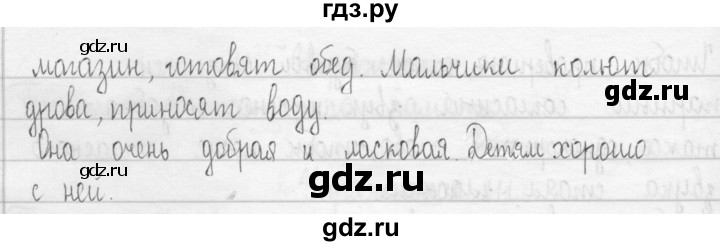 гдз.ру
gdz.ru gdz.ru
магазин, готовят обед. Мальчики колют
gdz.ru
дрова, приносят воду.
gdz.ru
Она очень добрая и ласковая. Детям хорошо
с ней.
gdz.ru gdz.ru
gdz.ru